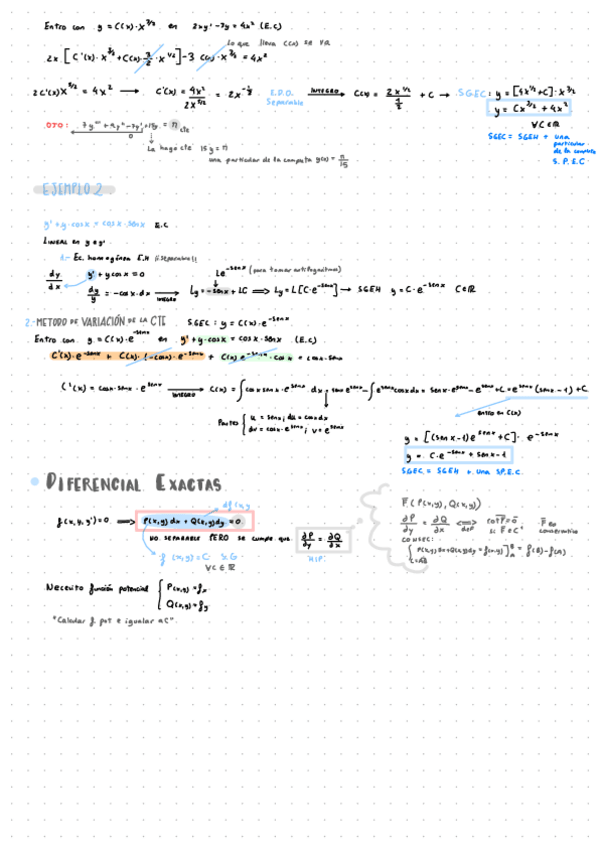 Entro con y = C(x)·x^{3/2} en 2xy' - 3y = 4x² (E.C)
Lo que lleva C(x) se va
2x [C'(x)·x^{3/2} + C(x)·3/2·x^{1/2}] - 3 C(x)·x^{3/2} = 4x²
2C'(x)x^{5/2} = 4x² → C'(x) = 4x²/2x^{5/2} = 2x^{-1/2} E.D.O. Separable → INTEGRO C(x) = 2x^{1/2}/(1/2) + C → SGEC: y = [4x^{1/2}+C]·x^{3/2}
y = Cx^{3/2} + 4x²
∀C∈ℝ
SGEC = SGEH + una particular de la completa S.P.E.C
OJO: + 15y = n cte
0
La hago cte 15y = n
una particular de la completa y(x) = n/15
EJEMPLO 2
y' + y·cosx = cosx·senx E.C
LINEAL en y e y'
1.- Ec. homogénea E.H (Separable)
dy/dx y' + ycosx = 0
Le^{-senx} (para tomar antilogaritmos)
dy/y = -cosx·dx → INTEGRO Ly = -senx + LC ⟹ Ly = L[C·e^{-senx}] → SGEH y = C·e^{-senx} C∈ℝ
2.- METODO DE VARIACIÓN DE LA CTE S.GEC: y = C(x)·e^{-senx}
Entro con y = C(x)·e^{-senx} en y' + y·cosx = cosx·senx (E.C)
C'(x)·e^{-senx} + C(x)·(-cosx)·e^{-senx} + C(x)e^{-senx}·cosx = cosx·senx
C'(x) = cosx·senx·e^{senx} → INTEGRO C(x) = ∫cosx senx·e^{senx} dx = senx e^{senx} - ∫e^{senx}cosx dx = senx·e^{senx} - e^{senx} + C = e^{senx}(senx - 1) + C
Partes { u = senx; du = cosxdx
dv = cosx·e^{senx}; v = e^{senx}
entro en C(x)
y = [(senx-1)e^{senx} + C]·e^{-senx}
y = C·e^{-senx} + senx - 1
SGEC = SGEH + una S.P.E.C.
DIFERENCIAL EXACTAS
df(x,y)
f(x,y,y') = 0 ⟹ P(x,y)dx + Q(x,y)dy = 0
NO SEPARABLE PERO se cumple que ∂P/∂y = ∂Q/∂x
HIP:
f(x,y) = C S.G
∀C∈ℝ
F(P(x,y), Q(x,y))
∂P/∂y = ∂Q/∂x ⟺ def rotF = 0 si F∈C¹ F es conservativo
CONSEC:
∫_{C=AB} P(x,y)dx + Q(x,y)dy = f(x,y)]_A^B = f(B) - f(A)
Necesito función potencial { P(x,y) = fx
Q(x,y) = fy
"Calcular f. pot e igualar a C"